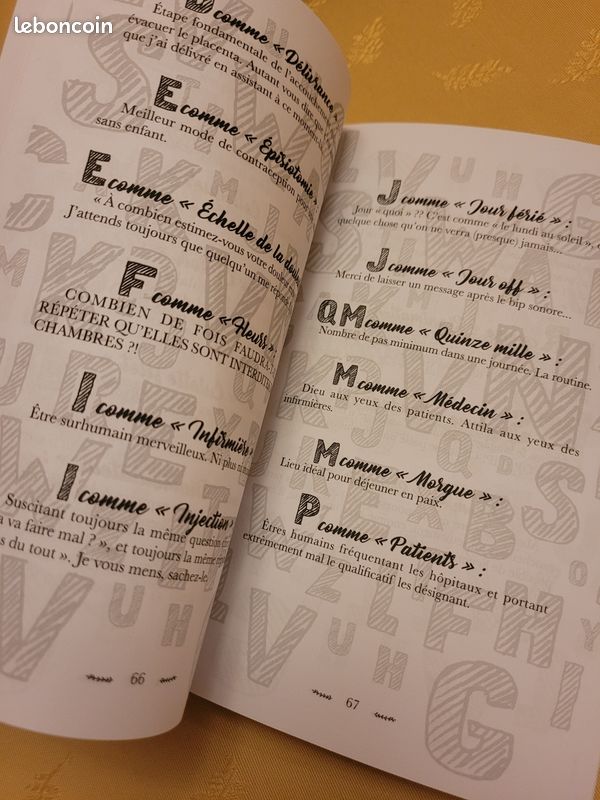 leboncoin
D comme « Délivrance »
Étape fondamentale de l'accouchement
évacuer le placenta. Autant vous dire que
que j'ai délivré en assistant à ce moment
E comme « Épisiotomie »
Meilleur mode de contraception pour
sans enfant.
E comme « Échelle de la douleur
« À combien estimez-vous votre douleur
J'attends toujours que quelqu'un me réponde
F comme « Fleurs »
COMBIEN DE FOIS FAUDRA-
RÉPÉTER QU'ELLES SONT INTERDITES
CHAMBRES ?!
I comme « Infirmière »
Être surhumain merveilleux. Ni plus ni
I comme « Injection »
Suscitant toujours la même question
a va faire mal ? », et toujours la même
s du tout ». Je vous mens, sachez-le.
66
J comme « Jour férié » :
Jour « quoi » ?? C'est comme « le lundi au soleil »,
quelque chose qu'on ne verra (presque) jamais...
J comme « Jour off » :
Merci de laisser un message après le bip sonore...
QM comme « Quinze mille » :
Nombre de pas minimum dans une journée. La routine.
M comme « Médecin » :
Dieu aux yeux des patients. Attila aux yeux des
infirmières.
M comme « Morgue » :
Lieu idéal pour déjeuner en paix.
P comme « Patients » :
Êtres humains fréquentant les hôpitaux et portant
extrêmement mal le qualificatif les désignant.
67